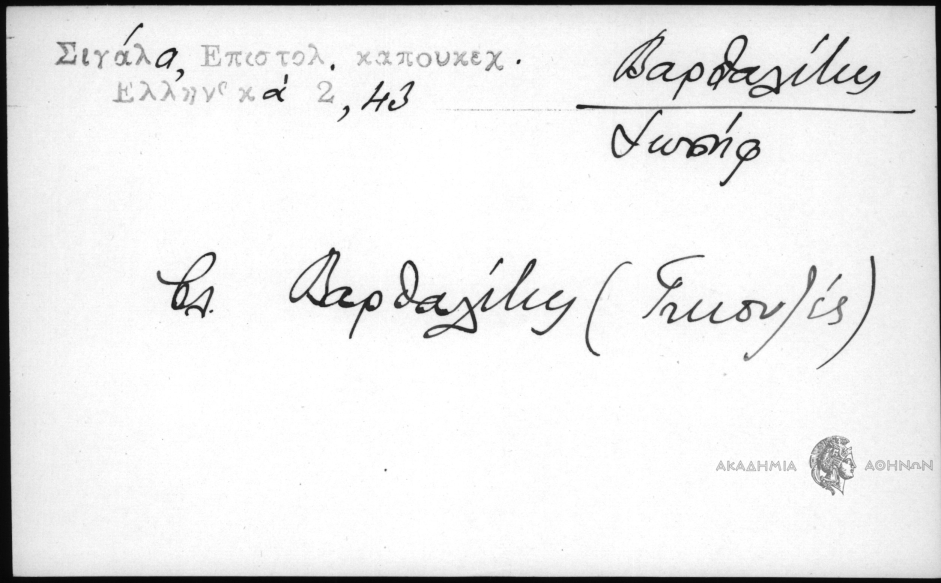 Σιγάλα, Επιστολ. καπουκεκ.
Ελληνικά 2, 43
Βαρθαλίτης
Ιωσήφ
βλ. Βαρθαλίτης (
ΑΚΑΔΗΜΙΑ ΑΘΗΝΩΝ